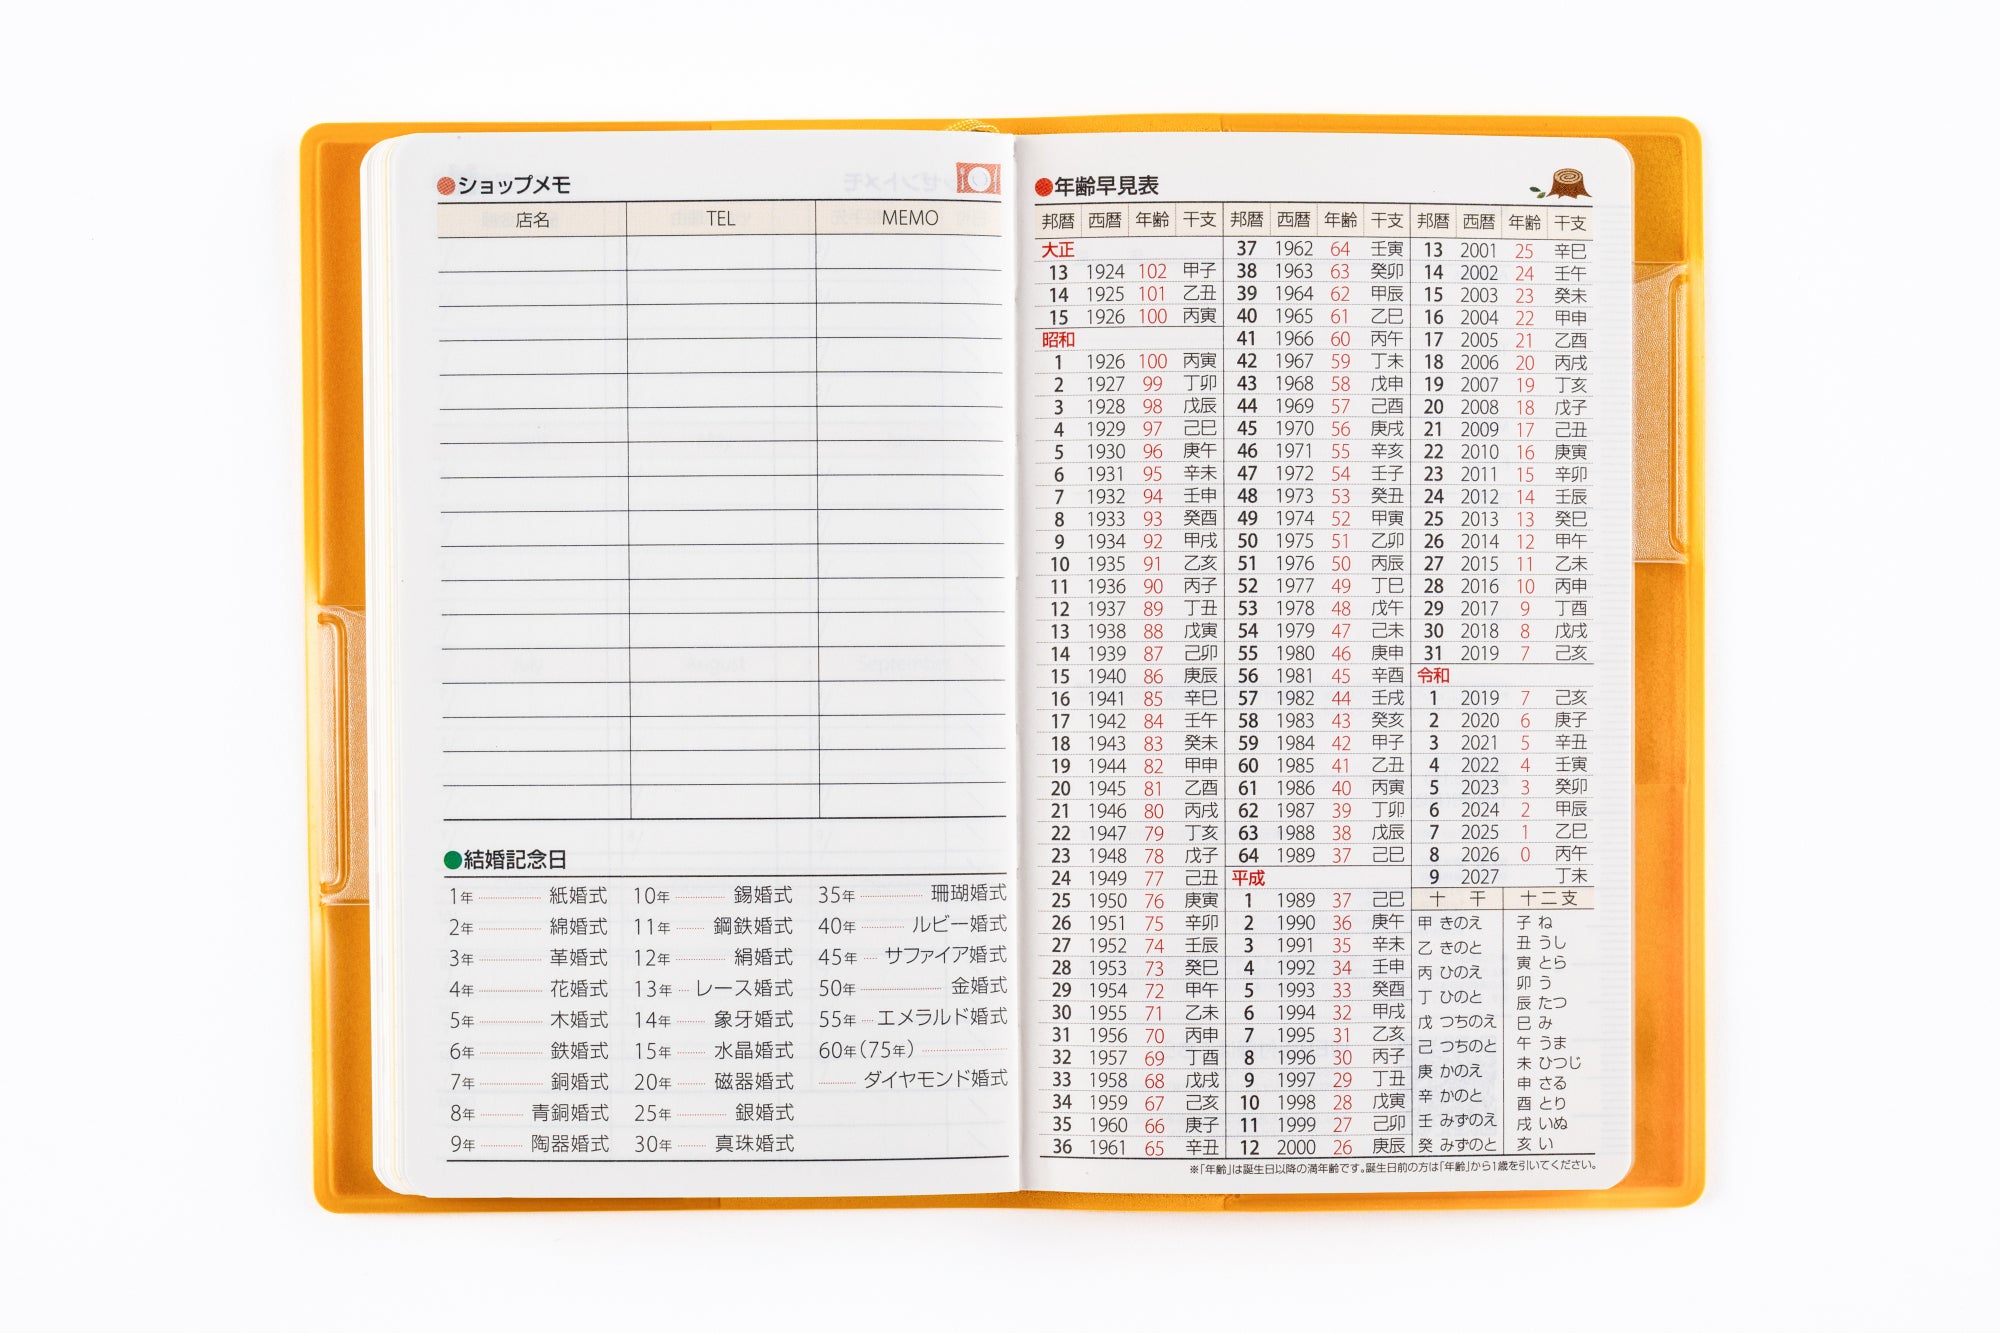 ショップメモ
店名 TEL MEMO
結婚記念日
1年 紙婚式 10年 錫婚式 35年 珊瑚婚式
2年 綿婚式 11年 鋼鉄婚式 40年 ルビー婚式
3年 革婚式 12年 絹婚式 45年 サファイア婚式
4年 花婚式 13年 レース婚式 50年 金婚式
5年 木婚式 14年 象牙婚式 55年 エメラルド婚式
6年 鉄婚式 15年 水晶婚式 60年(75年)
7年 銅婚式 20年 磁器婚式 ダイヤモンド婚式
8年 青銅婚式 25年 銀婚式
9年 陶器婚式 30年 真珠婚式
年齢早見表
邦暦 西暦 年齢 干支 邦暦 西暦 年齢 干支 邦暦 西暦 年齢 干支
大正
13 1924 102 甲子
14 1925 101 乙丑
15 1926 100 丙寅
昭和
1 1926 100 丙寅
2 1927 99 丁卯
3 1928 98 戊辰
4 1929 97 己巳
5 1930 96 庚午
6 1931 95 辛未
7 1932 94 壬申
8 1933 93 癸酉
9 1934 92 甲戌
10 1935 91 乙亥
11 1936 90 丙子
12 1937 89 丁丑
13 1938 88 戊寅
14 1939 87 己卯
15 1940 86 庚辰
16 1941 85 辛巳
17 1942 84 壬午
18 1943 83 癸未
19 1944 82 甲申
20 1945 81 乙酉
21 1946 80 丙戌
22 1947 79 丁亥
23 1948 78 戊子
24 1949 77 己丑
25 1950 76 庚寅
26 1951 75 辛卯
27 1952 74 壬辰
28 1953 73 癸巳
29 1954 72 甲午
30 1955 71 乙未
31 1956 70 丙申
32 1957 69 丁酉
33 1958 68 戊戌
34 1959 67 己亥
35 1960 66 庚子
36 1961 65 辛丑
37 1962 64 壬寅
38 1963 63 癸卯
39 1964 62 甲辰
40 1965 61 乙巳
41 1966 60 丙午
42 1967 59 丁未
43 1968 58 戊申
44 1969 57 己酉
45 1970 56 庚戌
46 1971 55 辛亥
47 1972 54 壬子
48 1973 53 癸丑
49 1974 52 甲寅
50 1975 51 乙卯
51 1976 50 丙辰
52 1977 49 丁巳
53 1978 48 戊午
54 1979 47 己未
55 1980 46 庚申
56 1981 45 辛酉
57 1982 44 壬戌
58 1983 43 癸亥
59 1984 42 甲子
60 1985 41 乙丑
61 1986 40 丙寅
62 1987 39 丁卯
63 1988 38 戊辰
64 1989 37 己巳
平成
1 1989 37 己巳
2 1990 36 庚午
3 1991 35 辛未
4 1992 34 壬申
5 1993 33 癸酉
6 1994 32 甲戌
7 1995 31 乙亥
8 1996 30 丙子
9 1997 29 丁丑
10 1998 28 戊寅
11 1999 27 己卯
12 2000 26 庚辰
13 2001 25 辛巳
14 2002 24 壬午
15 2003 23 癸未
16 2004 22 甲申
17 2005 21 乙酉
18 2006 20 丙戌
19 2007 19 丁亥
20 2008 18 戊子
21 2009 17 己丑
22 2010 16 庚寅
23 2011 15 辛卯
24 2012 14 壬辰
25 2013 13 癸巳
26 2014 12 甲午
27 2015 11 乙未
28 2016 10 丙申
29 2017 9 丁酉
30 2018 8 戊戌
31 2019 7 己亥
令和
1 2019 7 己亥
2 2020 6 庚子
3 2021 5 辛丑
4 2022 4 壬寅
5 2023 3 癸卯
6 2024 2 甲辰
7 2025 1 乙巳
8 2026 0 丙午
9 2027 丁未
十干
甲 きのえ
乙 きのと
丙 ひのえ
丁 ひのと
戊 つちのえ
己 つちのと
庚 かのえ
辛 かのと
壬 みずのえ
癸 みずのと
十二支
子 ね
丑 うし
寅 とら
卯 う
辰 たつ
巳 み
午 うま
未 ひつじ
申 さる
酉 とり
戌 いぬ
亥 い
※「年齢」は誕生日以降の満年齢です。誕生日前の方は「年齢」から1歳を引いてください。